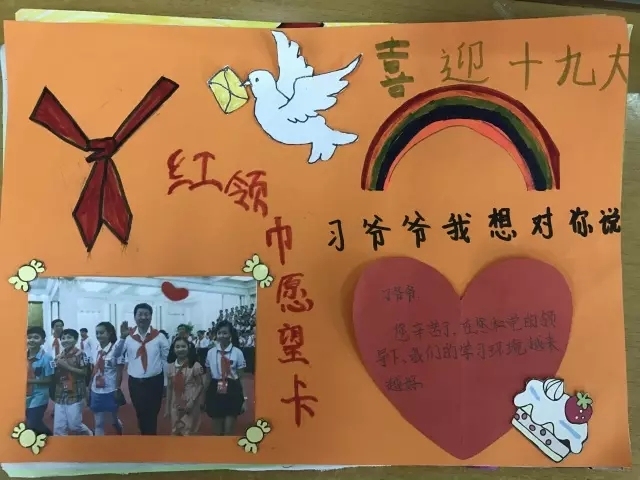 喜迎十九大
红领巾愿望卡
习爷爷我想对你说
习爷爷:
您辛苦了,在您松苑的领
导下,我们的学习环境越来
越好.